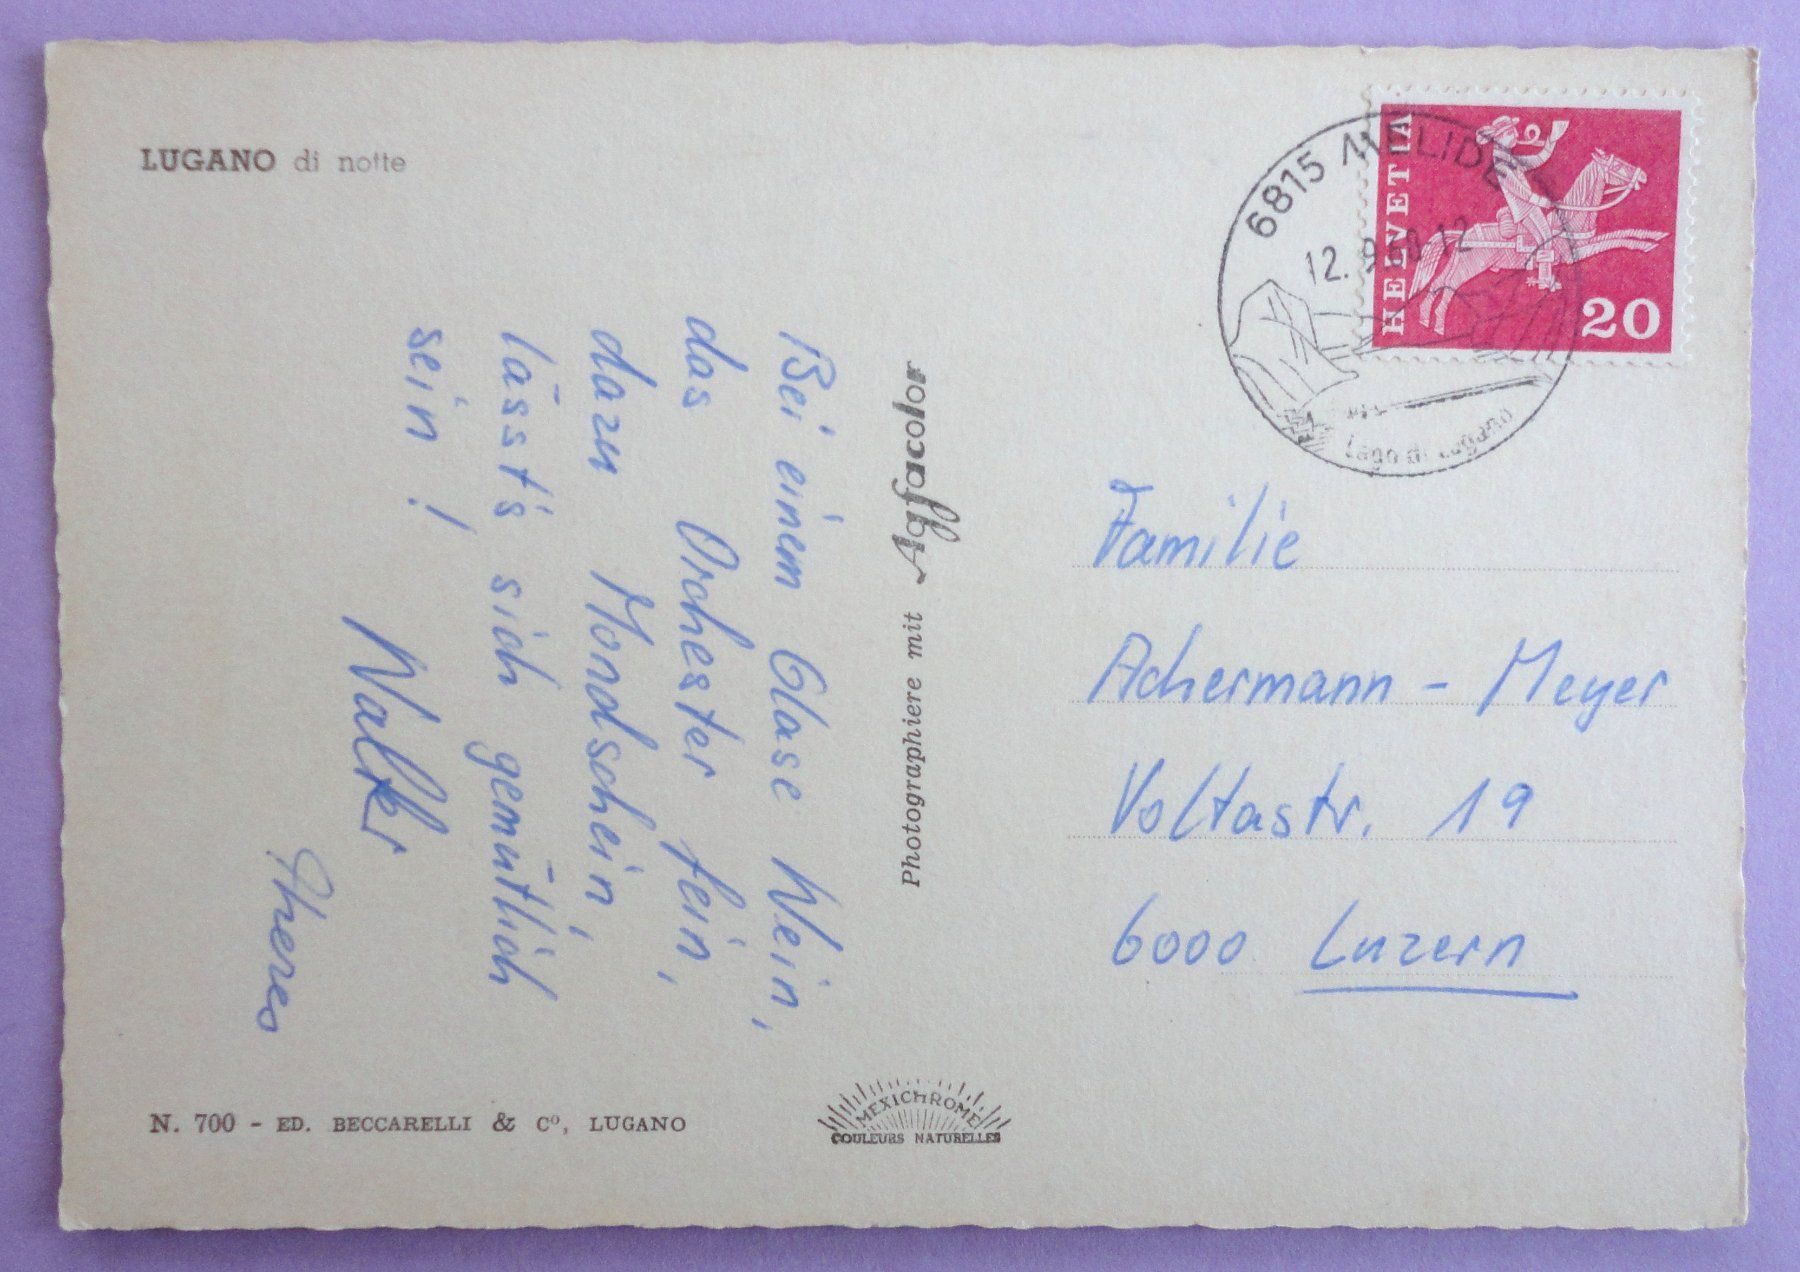 LUGANO di notte
Bei einem Glase Wein,
das Orchester fein,
dazu Mondschein,
lässt's sich gemütlich
sein!
Walter
Theres
N. 700 - ED. BECCARELLI & Cº, LUGANO
Photographiere mit Agfacolor
MEXICHROME
COULEURS NATURELLES
HELVETIA
20
6815 MELIDE
12. 9. 12
Lago di Lugano
Familie
Achermann - Meyer
Voltastr. 19
6000 Luzern